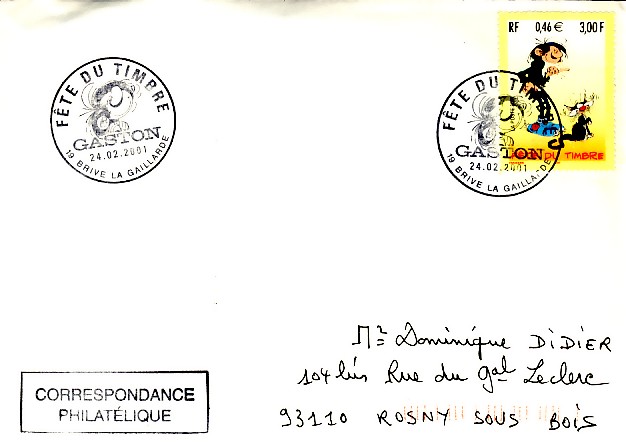 RF 0,46 € 3,00 F
FÊTE DU TIMBRE
GASTON
24.02.2001
19 BRIVE LA GAILLARDE
FÊTE DU TIMBRE
GASTON
24.02.2001
19 BRIVE LA GAILLARDE
DU TIMBRE
Mr Dominique DIDIER
104 bis Rue du Gal Leclerc
93110 ROSNY SOUS BOIS
CORRESPONDANCE
PHILATÉLIQUE